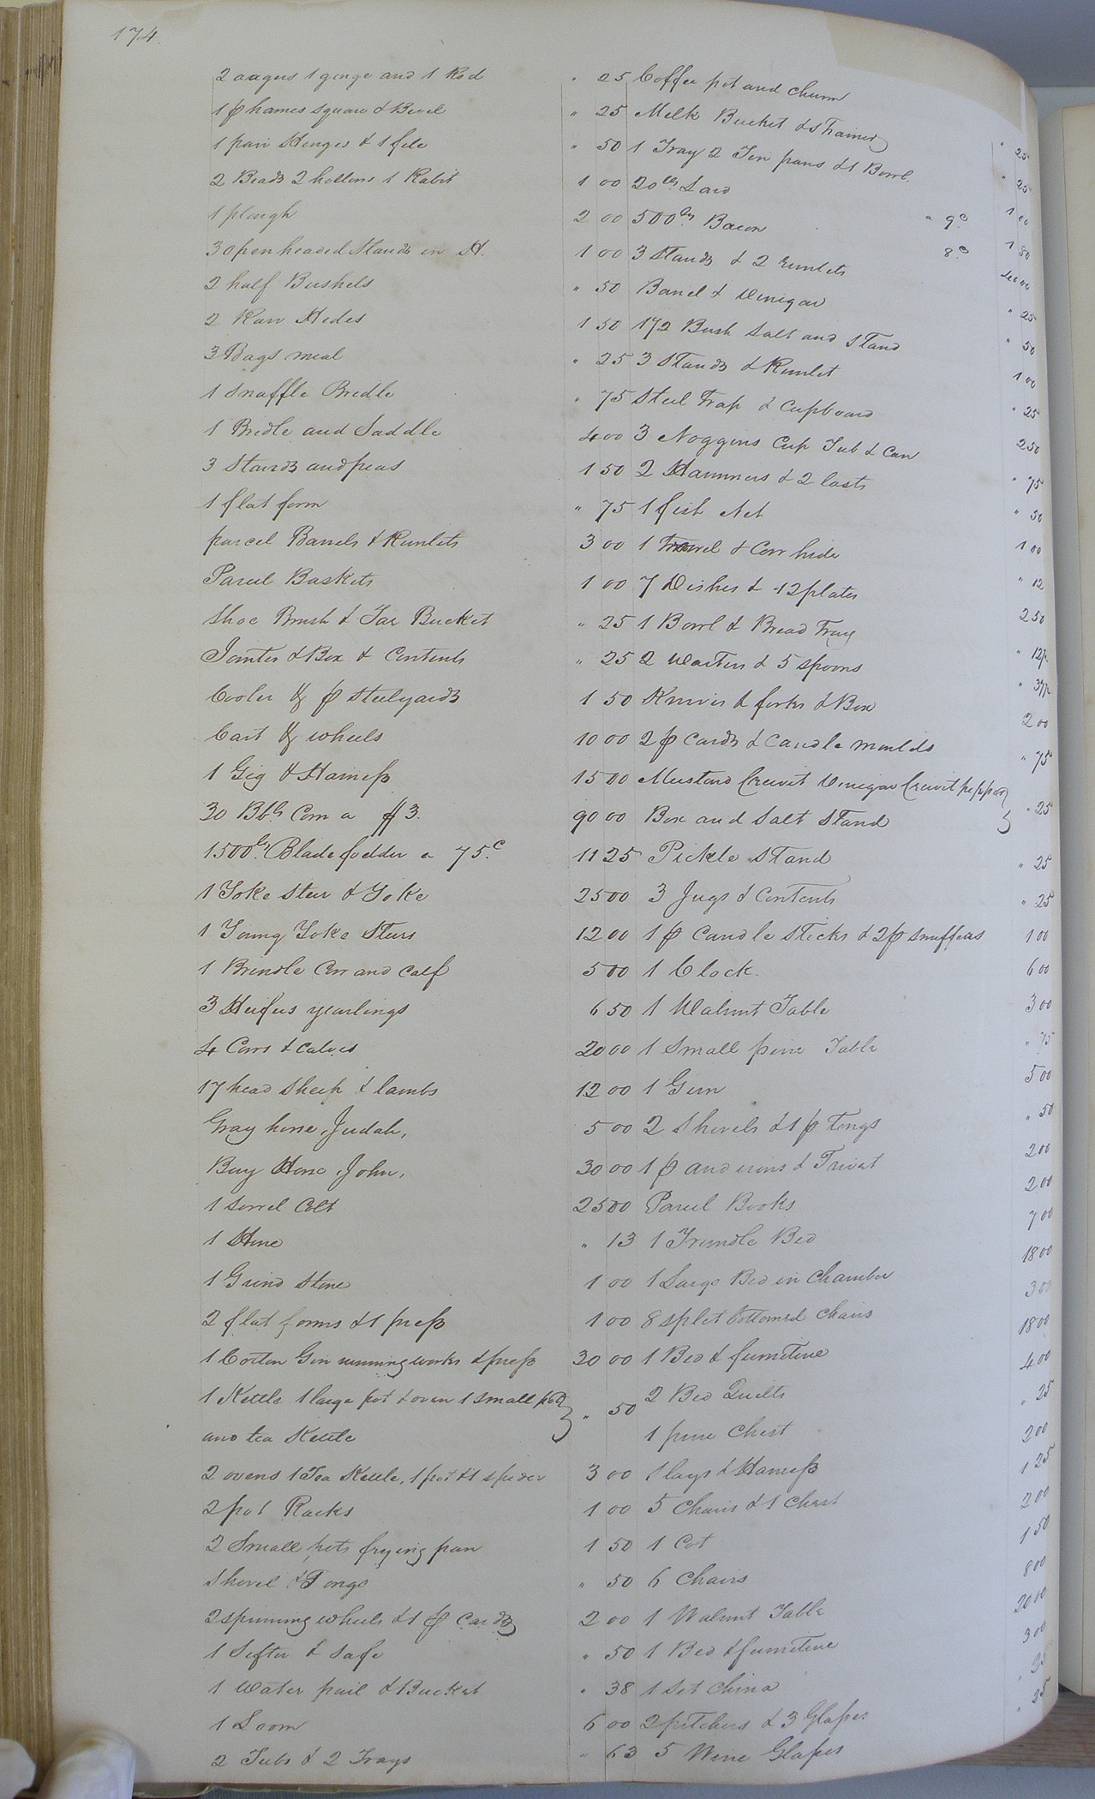 174.
2 augers 1 guage and 1 Rod " 25
1 p hames square & Bevel " 25
1 pair Hinges & 1 file " 50
2 Beads 2 hollows 1 Rabit 1 00
1 plough 2 00
3 open headed Stands in H. 1 00
2 half Bushels " 50
2 Raw Hides 1 50
3 Bags meal " 25
1 Snaffle Bridle " 75
1 Bridle and Saddle 4 00
3 Stands and peas 1 50
1 flat form " 75
parcel Barrels & Runlets 3 00
Parcel Baskets 1 00
Shoe Brush & Tar Bucket " 25
Jointer & Box & Contents " 25
Cooler & p Steelyards 1 50
Cart & wheels 10 00
1 Gig & Harness 15 00
30 Bbls Corn a $3. 90 00
1500 lbs Blade fodder a 75.c 11 25
1 Yoke Steer & Yoke 25 00
1 Young Yoke Steers 12 00
1 Brindle Cow and Calf 5 00
3 Heifers yearlings 6 50
4 Cows & Calves 20 00
17 head Sheep & lambs 12 00
Gray horse, Judah, 5 00
Bay Horse, John, 30 00
1 Sorrel Colt 25 00
1 Hone " 13
1 Grind Stone 1 00
2 flat forms & 1 press 1 00
1 Cotton Gin running works & press 30 00
1 Kettle 1 large pot & oven 1 small pot
and tea Kettle " 50
2 ovens 1 Tea Kettle, 1 pot & 1 spider 3 00
2 pot Racks 1 00
2 Small pots frying pan 1 50
Shovel & Tongs " 50
2 spinning wheels & 1 p Cards 2 00
1 Sifter & Safe " 50
1 Water pail & Bucket " 38
1 Loom 6 00
2 Tubs & 2 Trays " 63
Coffee pot and churn " 25
Milk Bucket & Strainer " 25
1 Tray 2 Tin pans & 1 Bowl 1 00
20 lbs Lard " 9c 1 80
500 lbs Bacon 8c 40 00
3 Stands & 2 runlets " 25
Barrel & Vinigar " 50
1 1/2 Bush Salt and Stand 1 00
3 Stands & Runlet " 25
Steel Trap & Cupboard 2 50
3 Noggins Cup Tub & Can " 75
2 Hammers & 2 lasts " 50
1 fish Net 1 00
1 Trowel & Cow hide " 12
7 Dishes & 12 plates 2 50
1 Bowl & Bread Tray " 12 1/2
2 Waiters & 5 spoons " 37 1/2
Knives & forks & Box 2 00
2 p Cards & Candle moulds " 75
Mustard Cruvit Vinigar Cruvit pepper
Box and Salt Stand " 25
Pickle Stand " 25
3 Jugs & Contents " 25
1 p Candle Sticks & 2 p snuffers 1 00
1 Clock. 6 00
1 Walnut Table 3 00
1 Small pine Table " 75
1 Gun 5 00
2 Shovels & 1 p Tongs " 50
1 p andirons & Trivet 2 00
Parcel Books 2 00
1 Trundle Bed 7 00
1 Large Bed in Chamber 18 00
8 split bottomed Chairs 3 00
1 Bed & furniture 18 00
2 Bed Quilts 4 00
1 pine Chest " 25
Slays & Harness 2 00
5 Chairs & 1 Chest 1 25
1 Cot 2 00
6 Chairs 1 50
1 Walnut Table 8 00
1 Bed & furniture 20 00
1 Set China 3 00
2 pitchers & 3 Glasses
5 Wine Glasses